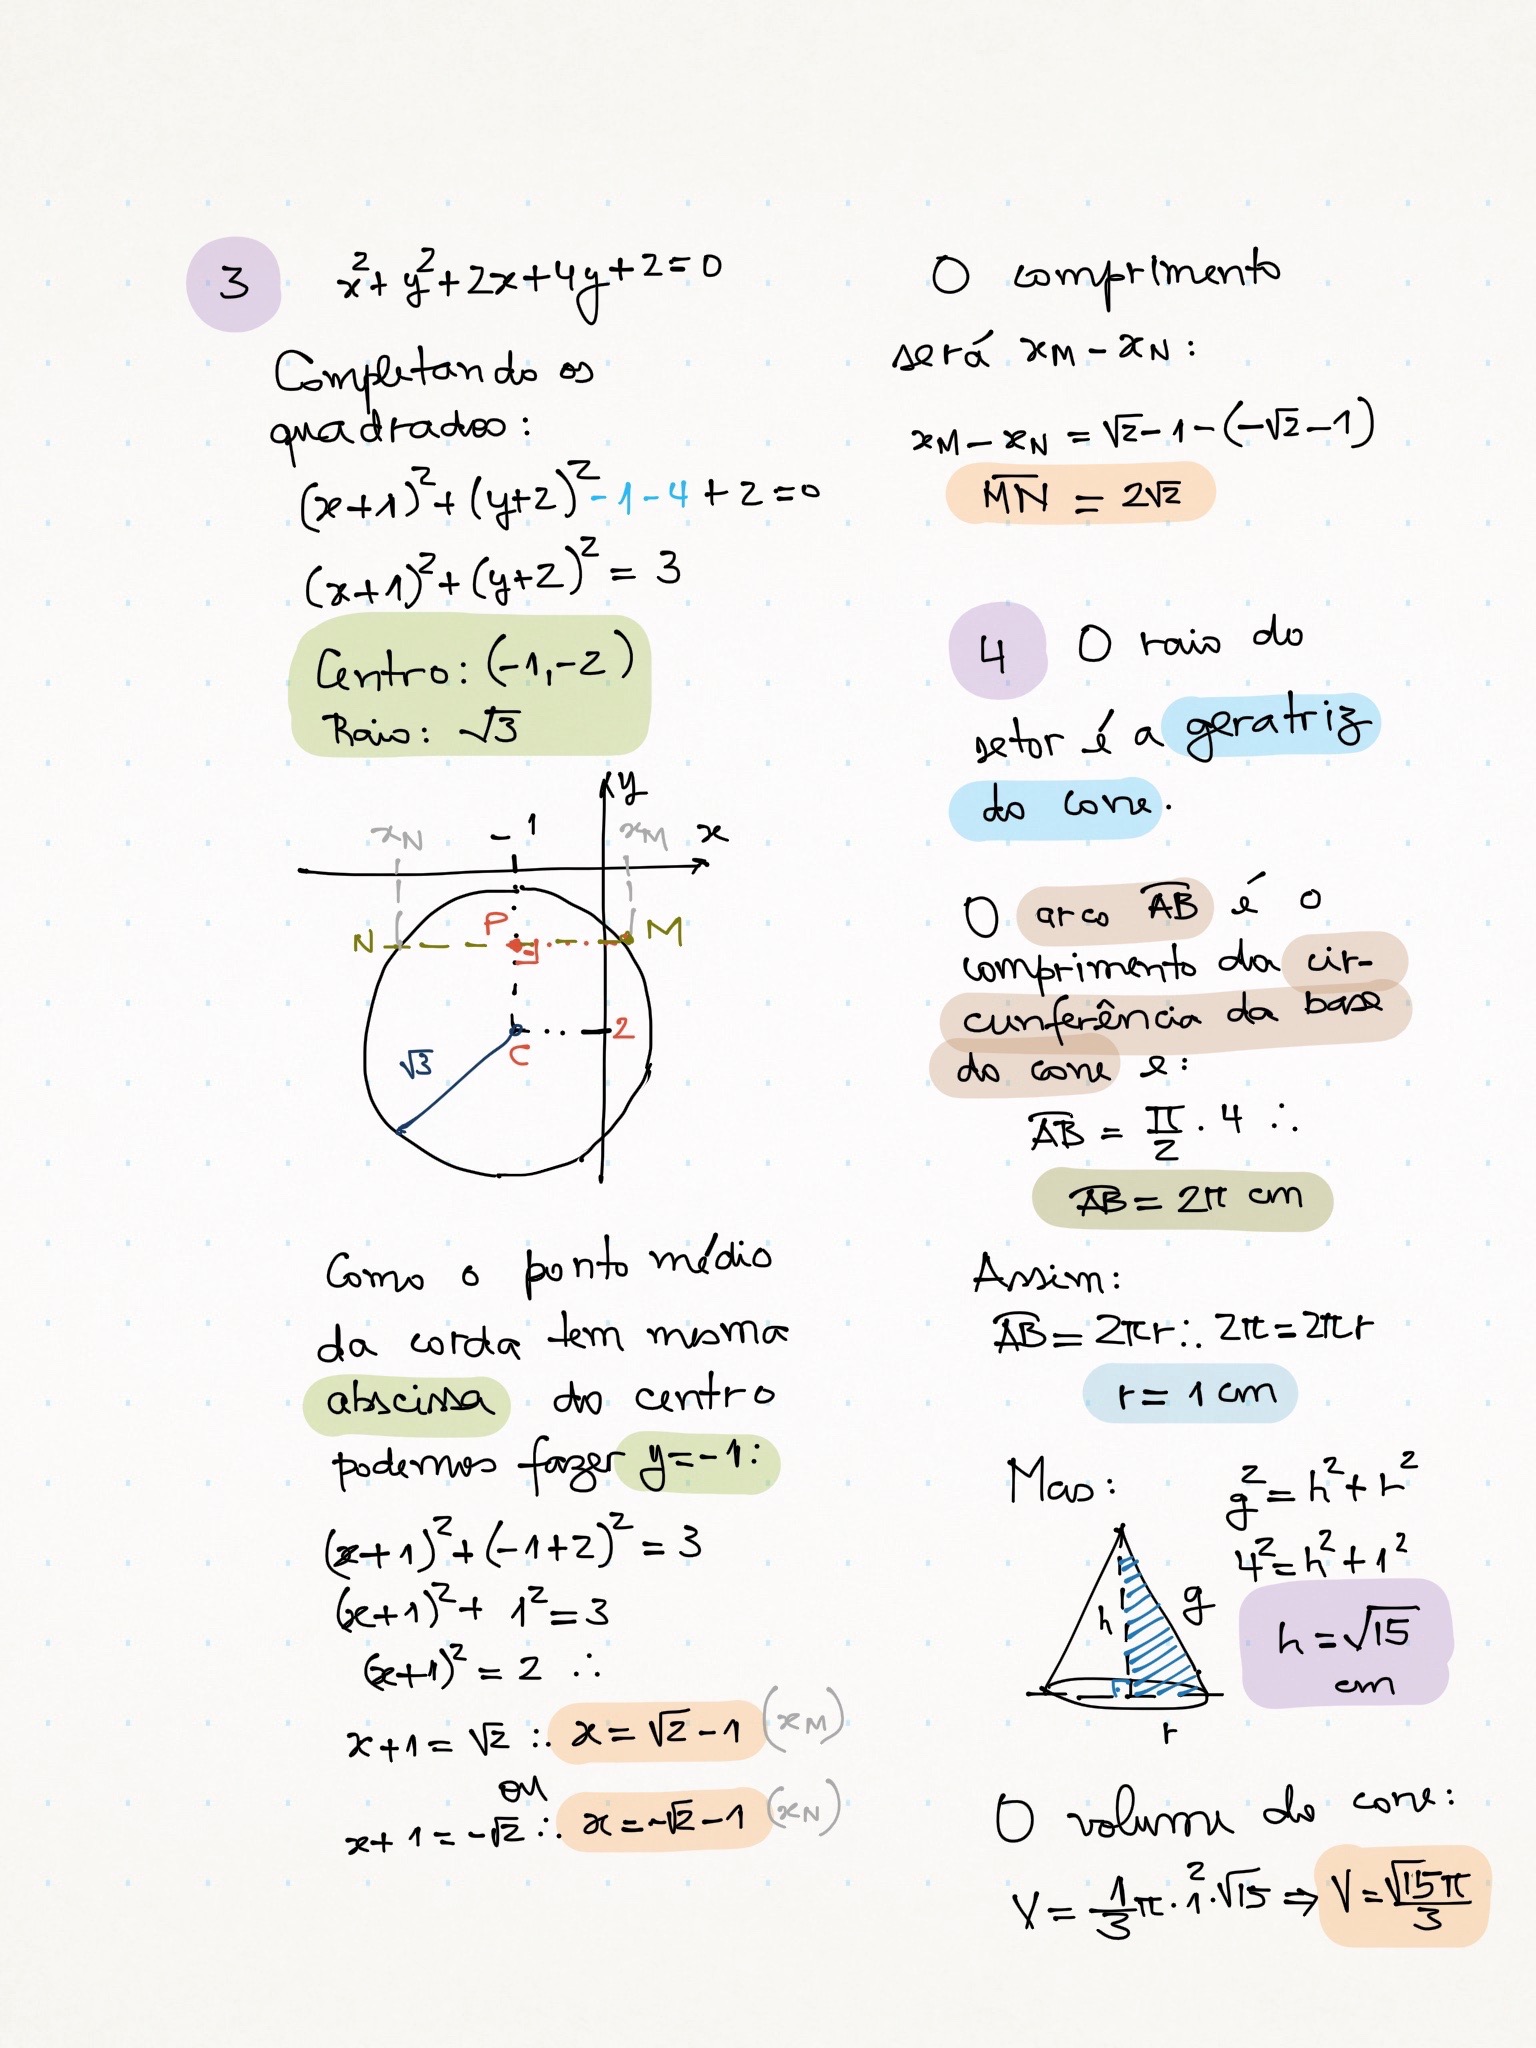 3
x²+ y²+2x+4y+2=0
Completando os
quadrados:
(x+1)²+(y+2)²-1-4+2=0
(x+1)²+(y+2)² = 3
Centro: (-1,-2)
Raio: √3
y
xN
-1
xM
x
N
P
M
√3
C
2
Como o ponto médio
da corda tem mesma
abscissa do centro
podemos fazer y=-1:
(x+1)²+(-1+2)² = 3
(x+1)²+ 1² = 3
(x+1)² = 2 ∴
x+1 = √2 ∴ x = √2 - 1 (xM)
ou
x+1 = -√2 ∴ x = -√2 - 1 (xN)
O comprimento
será xM - xN:
xM - xN = √2 - 1 - (-√2 - 1)
MN = 2√2
4 O raio do
setor é a geratriz
do cone.
O arco AB é o
comprimento da cir-
cunferência da base
do cone e:
AB = π/2 · 4 ∴
AB = 2π cm
Assim:
AB = 2πr ∴ 2π = 2πr
r = 1 cm
Mas:
g² = h² + r²
4² = h² + 1²
h
g
r
h = √15
cm
O volume do cone:
V = 1/3 π · 1² · √15 ⇒ V = √15π/3